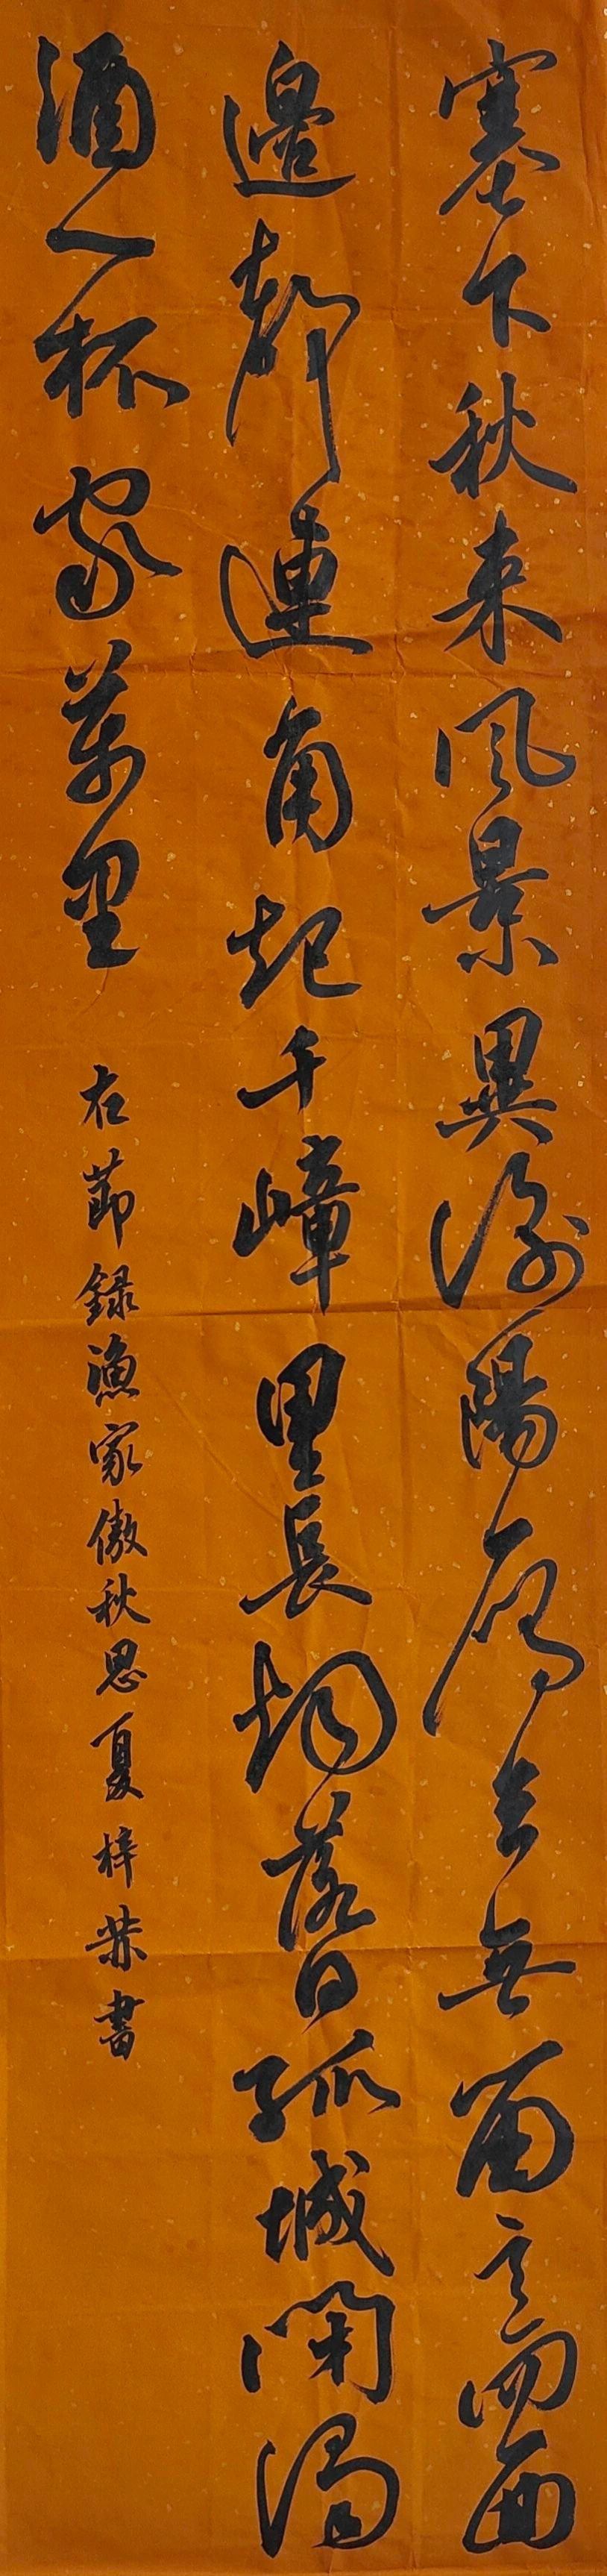 塞下秋来風景異衡陽雁去無留意四面
邊聲連角起千嶂里長烟落日孤城閉濁
酒一杯家萬里
右節録漁家傲秋思夏梓書